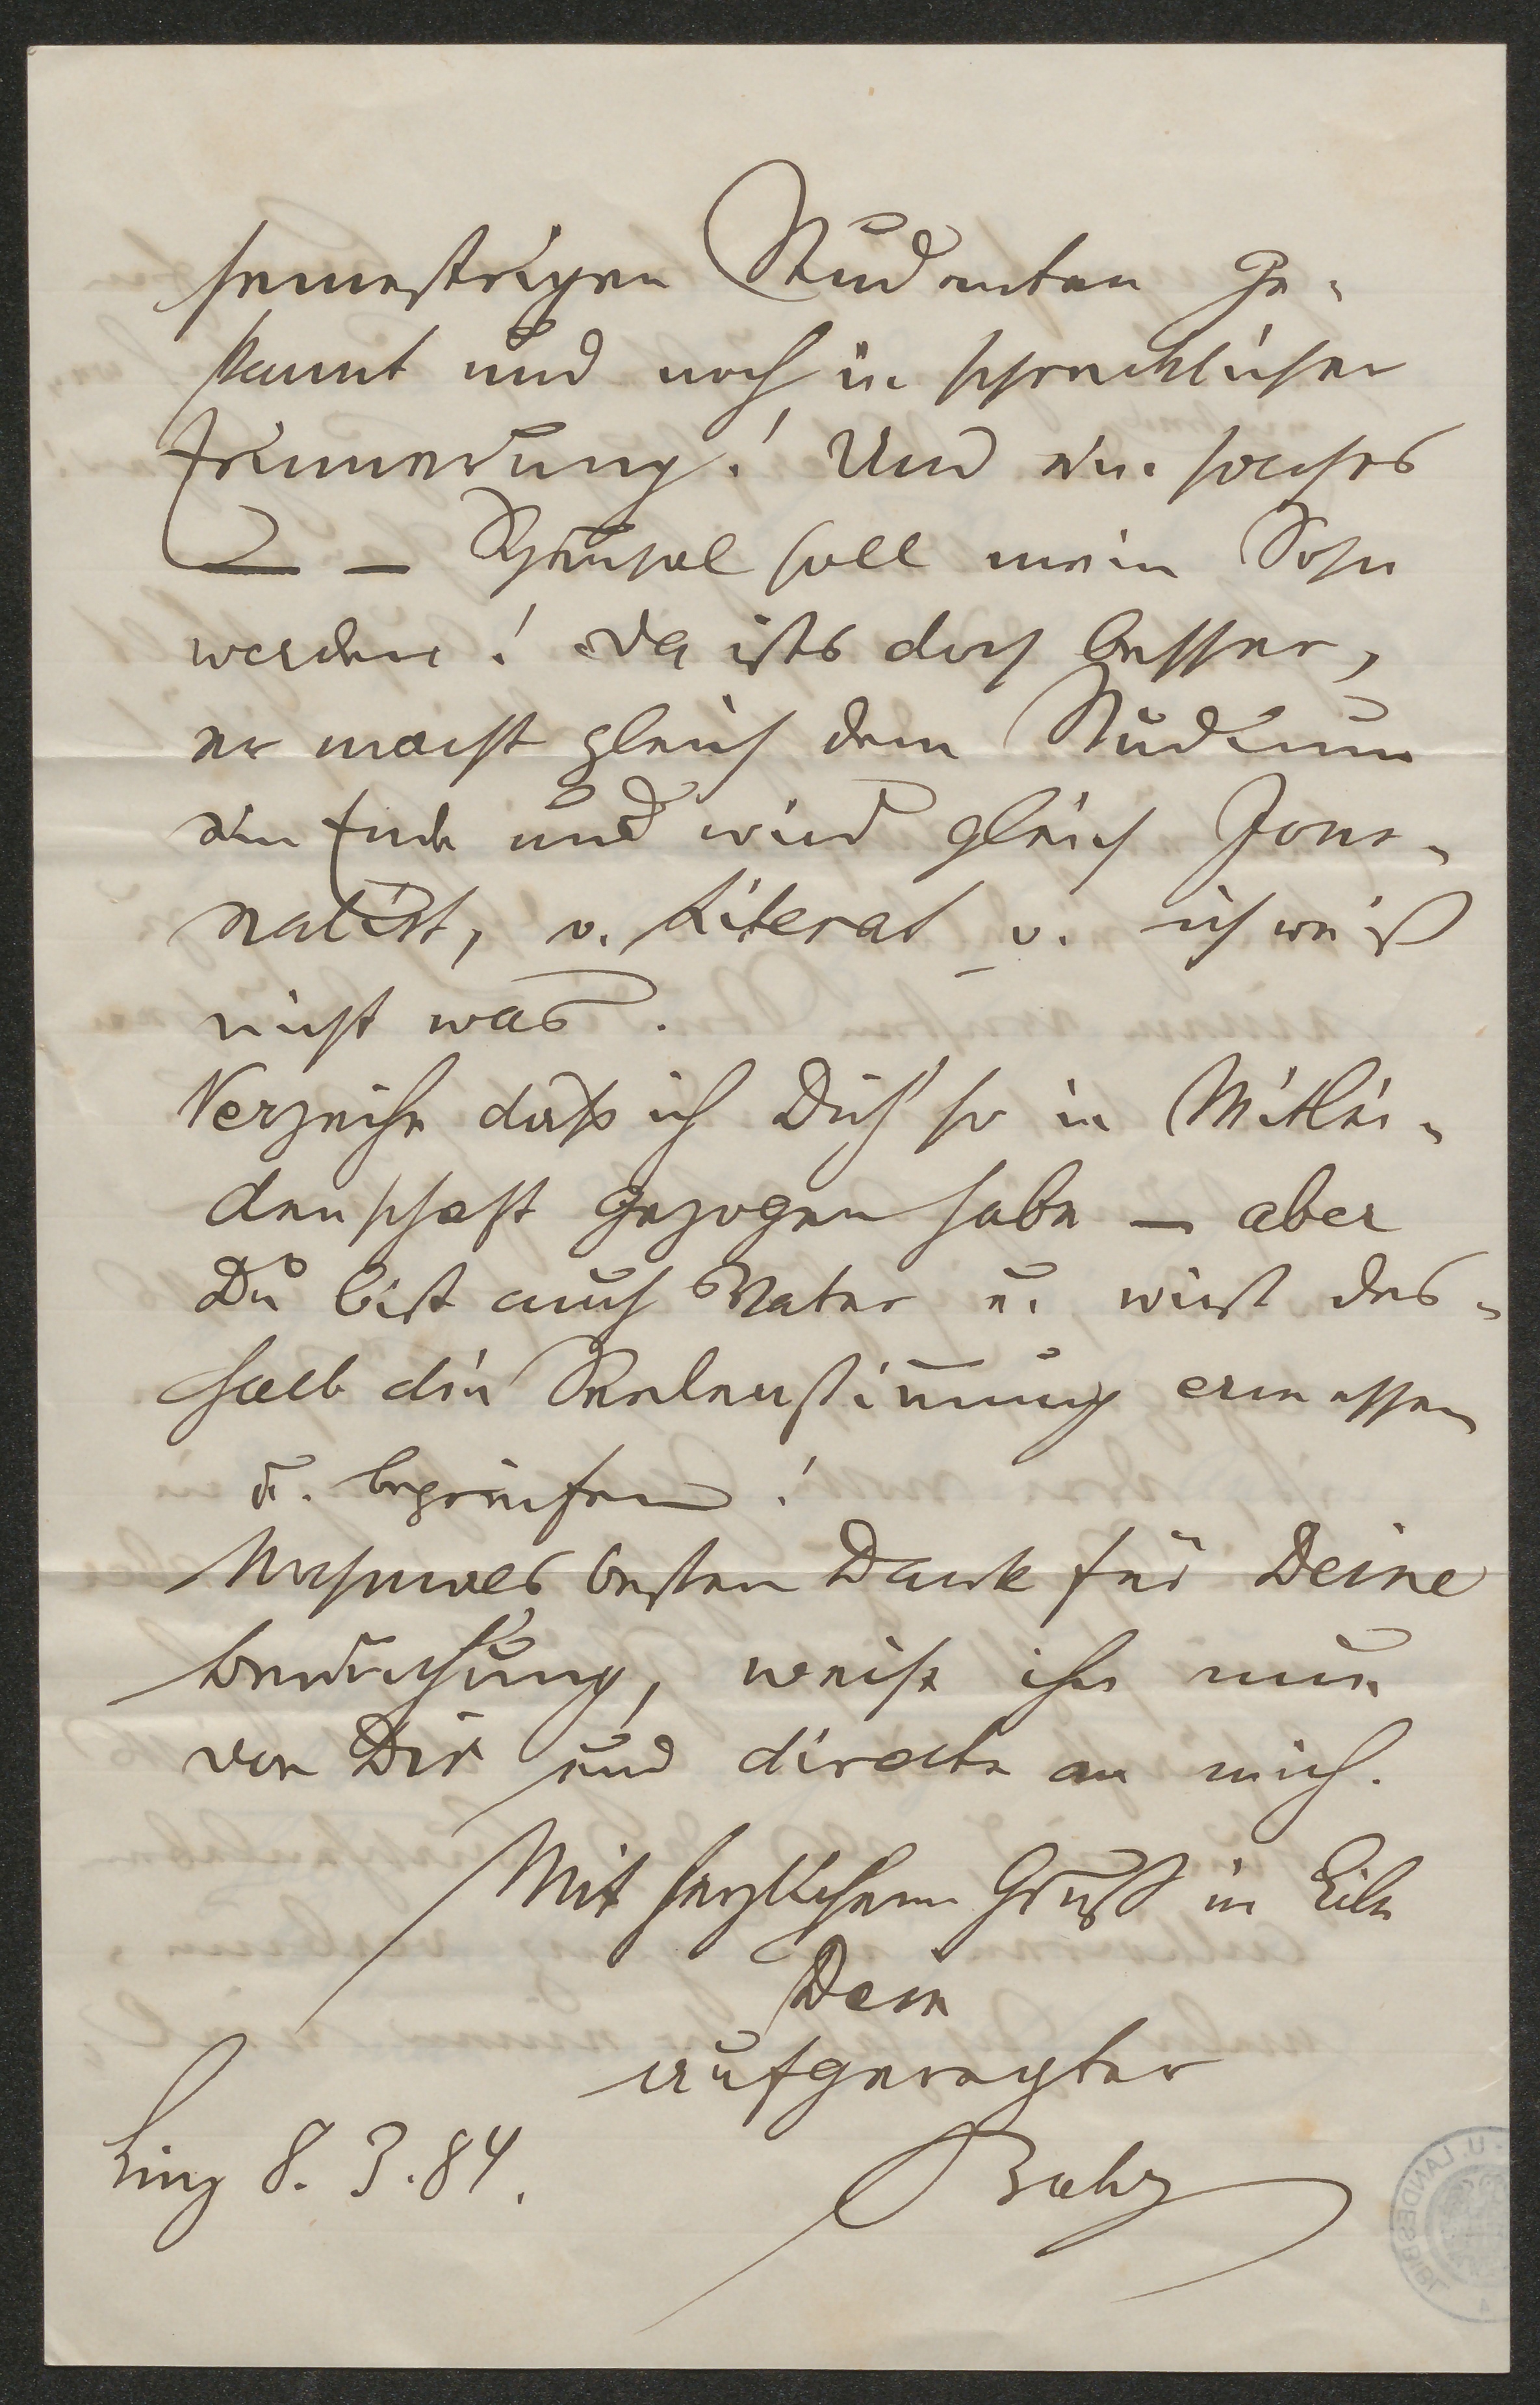 semestrigen Studenten ge-
kannt und noch in schrecklicher
Erinnerung! Und ein solches
— — Scheusal soll mein Sohn
werden! Da ists doch besser,
er macht gleich dem Studium
ein Ende und wird gleich Jour-
nalist, o. Literat o. ich weiß
nicht was.
Verzeihe daß ich Dich so in Mitlei-
denschaft gezogen habe — aber
Du bist auch Vater u. wirst des-
halb die Seelenstimmung ermessen
u. begreifen!
Nochmals besten Dank für Deine
Bemühung, weise ihn nun
von Dir und directe an mich.
Mit herzlichem Gruß in Eile
Dein
aufgeregter
Bahr
Linz 8. 3. 84.
U. LANDESBIBL